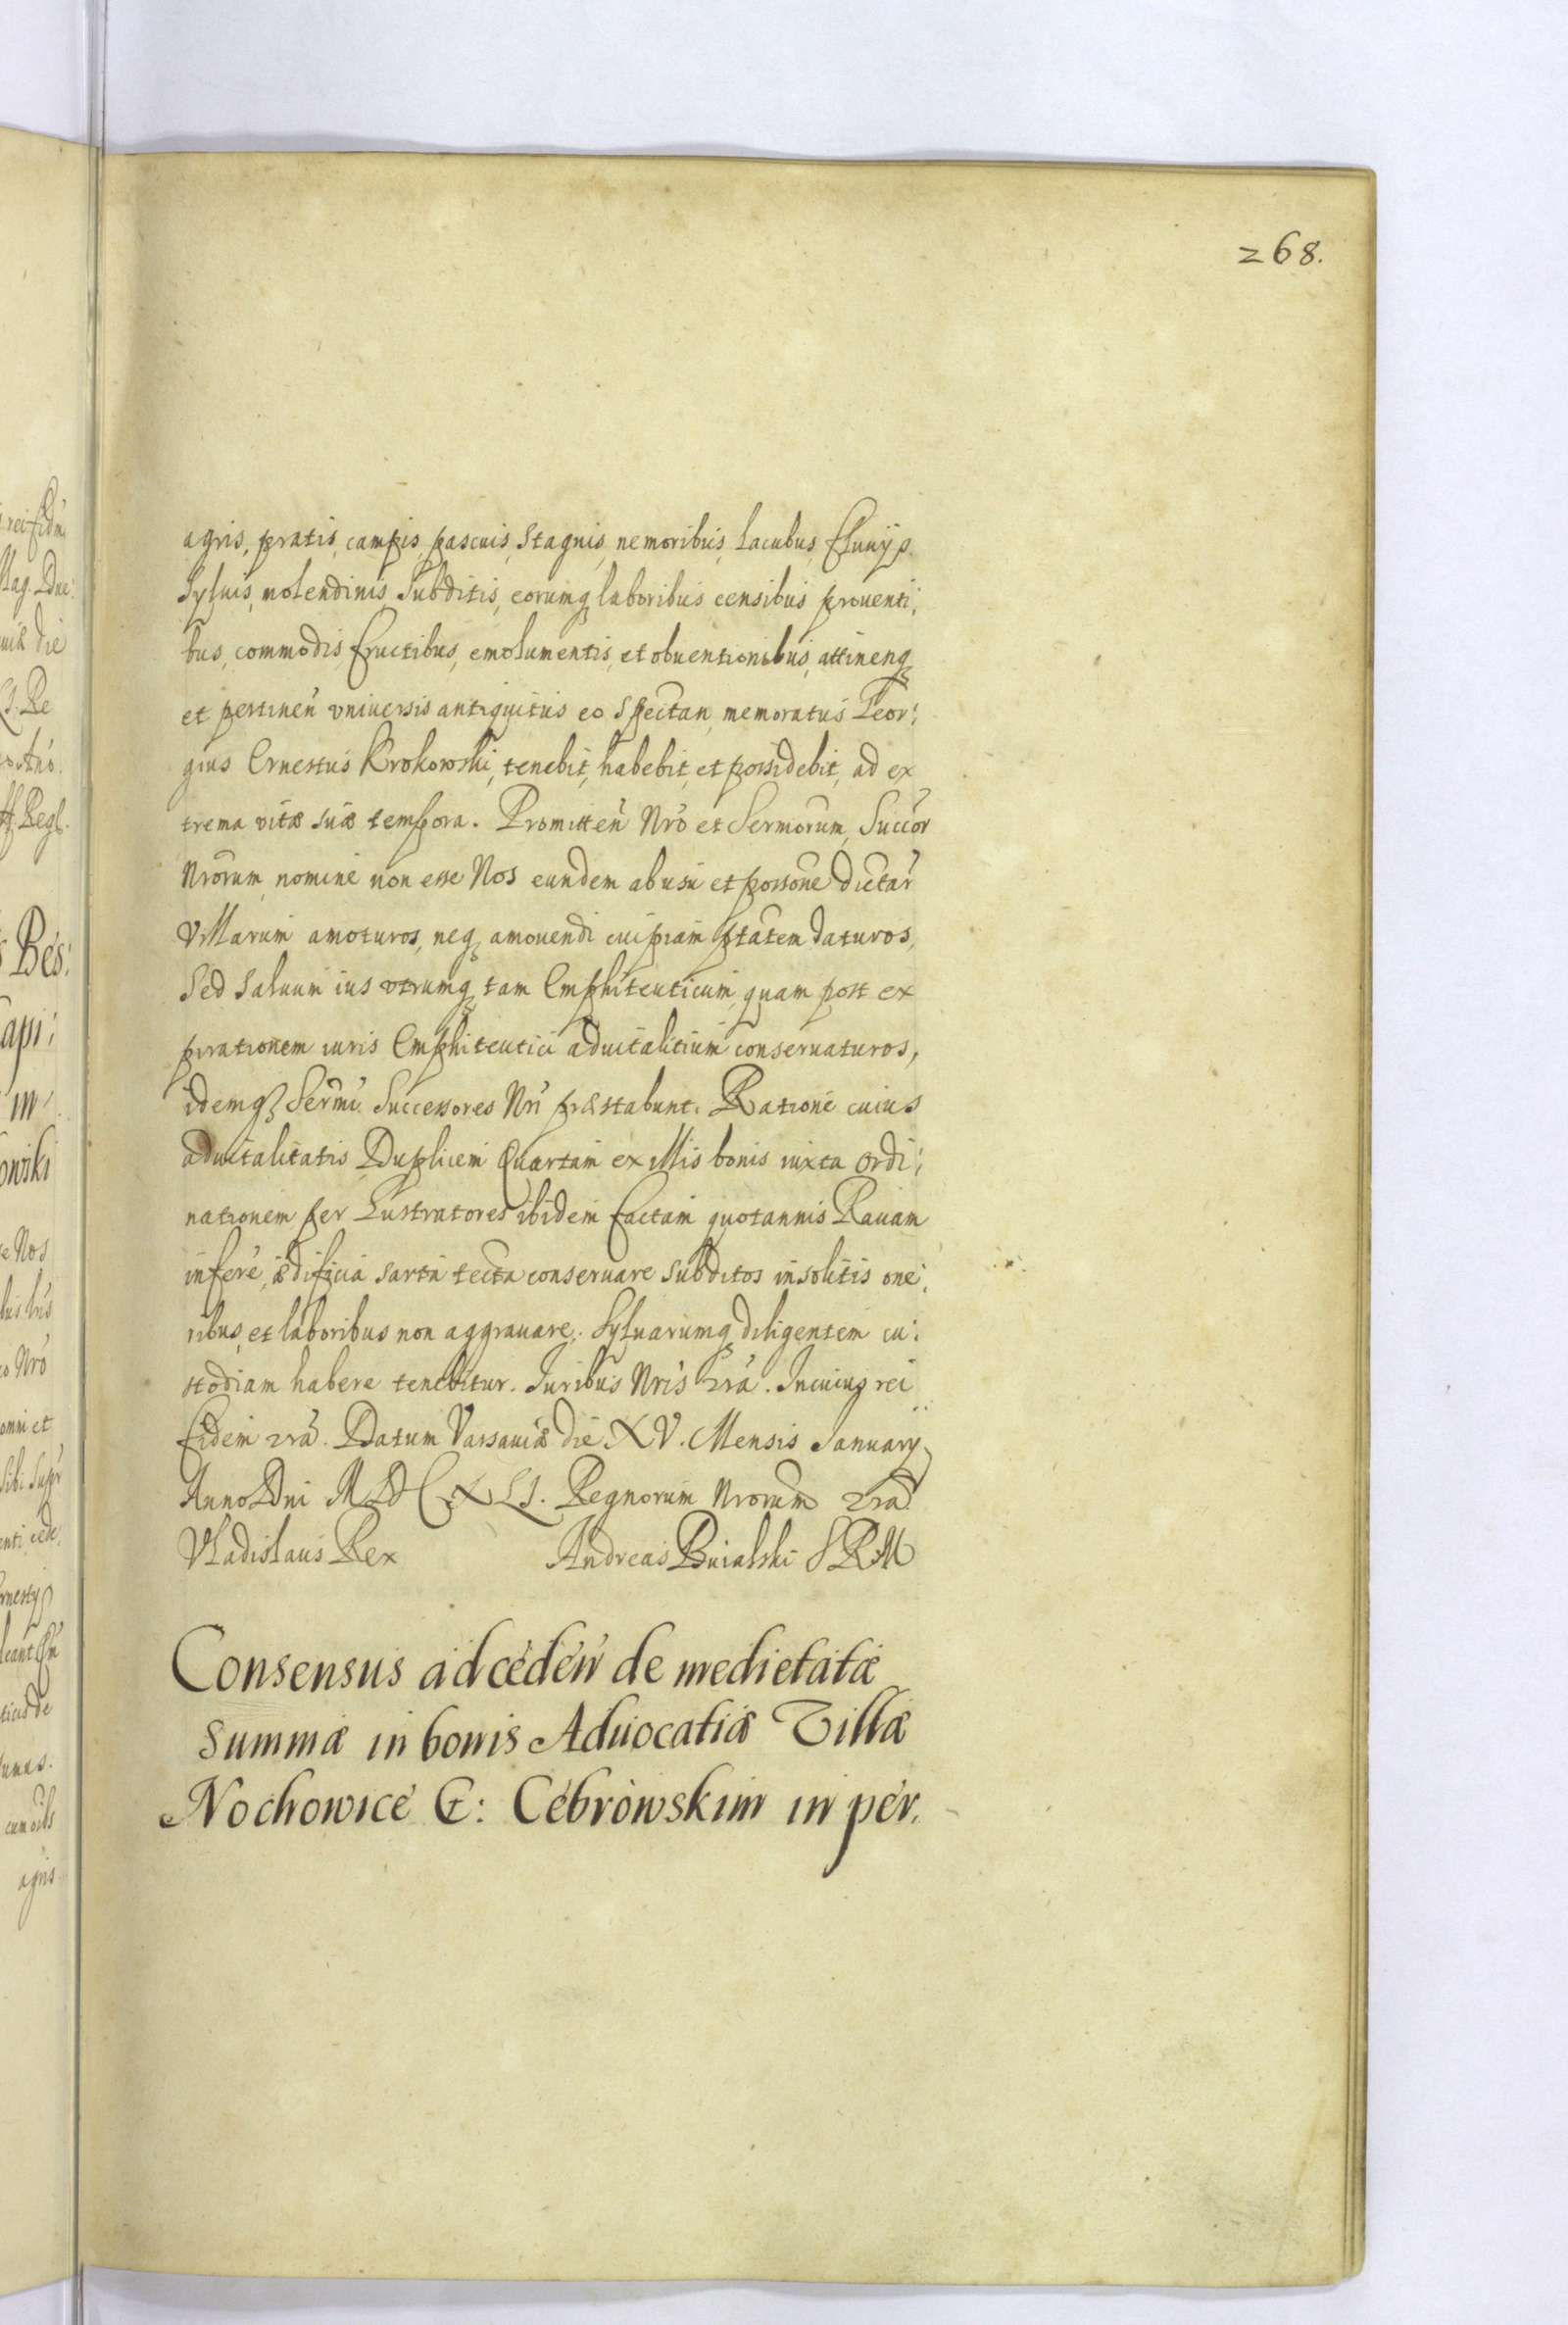 268.
agris, pratis, campis, pascuis, Stagnis, nemoribus, Lacubus, fluuijs.
Syluis, molendinis, Subditis, eorumq laboribus censibus prouenti,
bus, commodis fructibus, emolumentis, et obuentionibus, attineng
et pertinen vniuersis antiquitus eo Spectan, memoratus Geor:
gius Ernestus Krokowski, tenebit, habebit, et possidebit, ad ex
trema vitæ suæ tempora. Promitten Nro et Sermorum, Succor
Nrorum, nomine non esse Nos eundem ab usu et possone dictar
Villarum amoturos, neq amouendi cuipiam ptatem daturos,
Sed Saluum ius vtrumq tam Emphiteuticum, quam post ex
pirationem iuris Emphiteutici aduitalitium conseruaturos,
idemq Sermi Successores Nri præstabunt. Ratione cuius
aduitalitatis Duplicem Quartam ex illis bonis iuxta ordi:
nationem per Lustratores ibidem factam quotannis Rauam
inferé, ædificia sarta tecta conseruare subditos insolitis one:
ribus, et laboribus non aggrauare. Syluarumq diligentem cu:
stodiam habere tenebitur. Iuribus Nris 2ra. In cuius rei
fidem 2ra. Datum Varsauiæ die XV. Mensis January
Anno Dni MDCXLI. Regnorum Nrorum 2ra
Vladislaus Rex Andreas Buialski SRM
Consensus ad ceden de medietatæ
Summæ in bonis Aduocatiæ Villæ
Nochowice G: Cebrowskim in per.